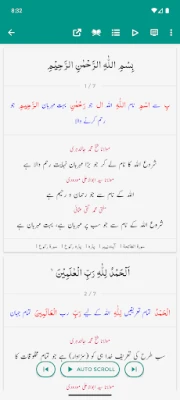 8:32
بِسْمِ اللّٰهِ الرَّحْمٰنِ الرَّحِيْمِ
1 / 7
بِ سے اسْمِ نام اللّٰهِ اللہ ال جو رَّحْمٰنِ بہت مہربان الرَّحِيْمِ جو
رحم کرنے والا
مولانا فتح محمد جالندہری
شروع اللہ کا نام لے کر جو بڑا مہربان نہایت رحم والا ہے
مولانا سید ابوالاعلی مودودی
اللہ کے نام سے جو رحمان و رحیم ہے
مفتی محمد تقی عثمانی
شروع اللہ کے نام سے جو سب پر مہربان ہے، بہت مہربان ہے
اَلْحَمْدُ لِلّٰهِ رَبِّ الْعٰلَمِيْنَ
2 / 7
الْحَمْدُ تمام تعریفیں لِلّٰهِ اللہ کے لیے رَبِّ رب الْعَالَمِينَ تمام جہان
مولانا فتح محمد جالندہری
سب طرح کی تعریف خدا ہی کو (سزاوار) ہے جو تمام مخلوقات کا
AUTO SCROLL
مولانا سید ابوالاعلی مودودی